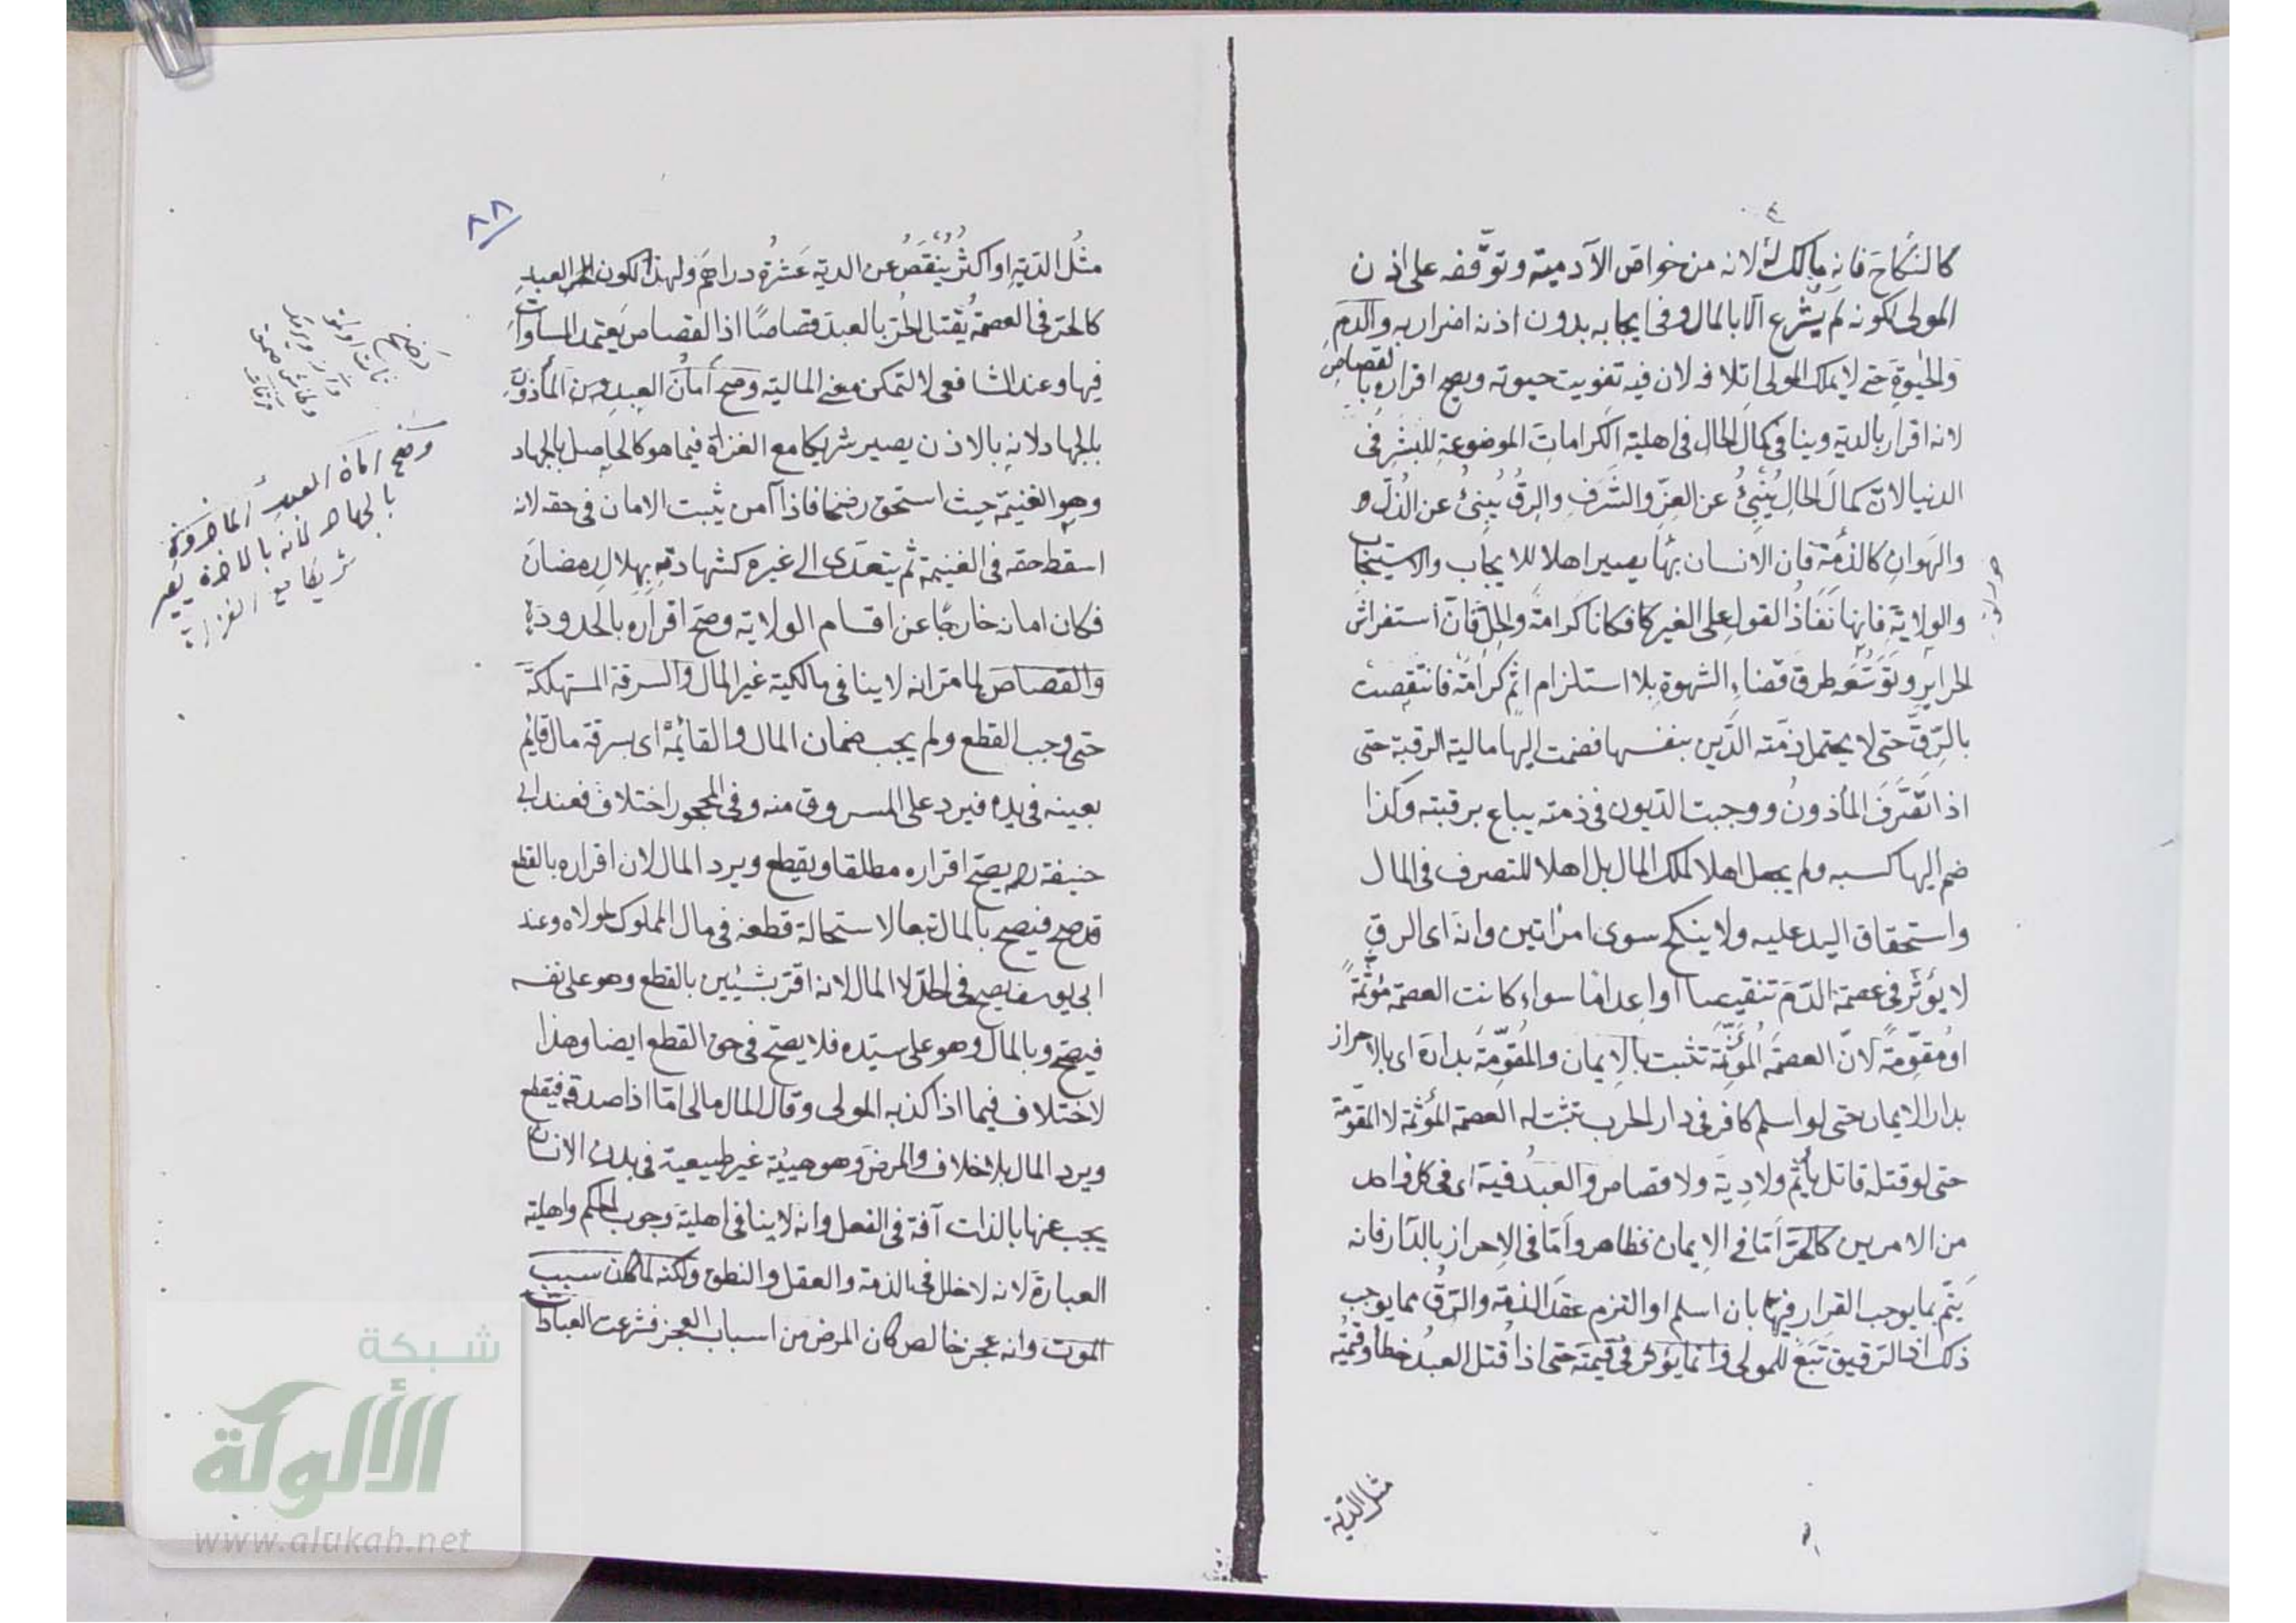 كالنكاح فانه مالك له لانه من خواص الآدمية وتوقفه على اذن
المولى لكونه لم يشرع الا بالمال وفى ايجابه بدون اذنه اضرار به والدم
والحيوة حتى لا يملك المولى اتلافه لان فيه تفويت حيوته ويصح اقراره بالقصاص
لانه اقرار بالدية وينافى كمال الحال فى اهلية الكرامات الموضوعة للبشر فى
الدنيا لان كمال الحال ينبئ عن العز والشرف والرق ينبئ عن الذل
والهوان كالذمة فان الانسان بها يصير اهلا للايجاب والاستيجاب
والولاية فانها نفاذ القول على الغير فكانا كرامة والحل فان استفراش
الحراير وتوسعه طرق قضاء الشهوة بلا استلزام اثم كرامة فانتقصت
بالرق حتى لا يحتمل ذمته الدين بنفسها فضمت اليها مالية الرقبة حتى
اذا تصرف المأذون ووجبت الديون فى ذمته يباع برقبته وكذا
ضم اليها كسبه ولم يجعل اهلا لملك المال بل اهلا للتصرف فى المال
واستحقاق اليد عليه ولا ينكح سوى امراتين وانه اى الرق
لا يؤثر فى عصمة الدم تنقيصا او اعداما سواء كانت العصمة مؤثمة
او مقومة لان العصمة المؤثمة تثبت بالايمان والمقومة بداره اى بالاحراز
بدار الايمان حتى لو اسلم كافر فى دار الحرب تثبت له العصمة المؤثمة لا المقومة
حتى لو قتله قاتل يأثم ولا دية ولا قصاص والعبد فيه اى فى كل واحد
من الامرين كالحر اما فى الايمان فظاهر واما فى الاحراز بالدار فانه
يتم بما يوجب القرار فيها بان اسلم او التزم عقد الذمة والرق مما يوجب
ذلك اذ الرقيق تبع للمولى وانما يؤثر فى قيمته حتى اذا قتل العبد خطأ وقيمته
مثل الدية
٨٨
مثل الدية او اكثر ينقص عن الدية عشرة دراهم ولهذا لكون العبد
كالحر فى العصمة يقتل الحر بالعبد قصاصا اذ القصاص يعتمد المساوات
فيها وعند الشافعى لا لتمكن معنى المالية وصح أمان العبد المأذون
بالجهاد لانه بالاذن يصير شريكا مع الغزاة فيما هو كالحاصل بالجهاد
وهو الغنيمة حيث استحق رضخا فاذا آمن يثبت الامان فى حقه لانه
اسقط حقه فى الغنيمة ثم يتعدى الى غيره كشهادته بهلال رمضان
فكان امانه خارجا عن اقسام الولاية وصح اقراره بالحدود
والقصاص لما مر انه لا ينافى مالكية غير المال والسرقة المستهلكة
حتى وجب القطع ولم يجب ضمان المال والقائمة اى بسرقة مال قايم
بعينه فى يده فيرد على المسروق منه وفى المحجور اختلاف فعند ابى
حنيفة يصح اقراره مطلقا ويقطع ويرد المال لان اقراره بالقطع
قد صح فيصح بالمال تبعا لاستحالة قطعه فى مال المملوك لمولاه وعند
ابى يوسف يصح فى الحد لا المال لانه اقر بشيئين بالقطع وهو على نفسه
فيصح وبالمال وهو على سيده فلا يصح فى حق القطع ايضا وهذا
لاختلاف فيما اذا كذبه المولى وقال المال مالى اما اذا صدقه فيقطع
ويرد المال بلا خلاف والمرض وهو هيئة غير طبيعية فى بدن الانسان
يجب عنها بالذات آفة فى الفعل وانه لا ينافى اهلية وجوب الحكم واهلية
العبارة لانه لا خلل فى الذمة والعقل والنطق ولكنه لما كان سبب
الموت وانه عجز خالص كان المرض من اسباب العجز فشرعت العبادات
وصح امان العبد المأذون
بالجهاد لانه بالاذن يصير
شريكا مع الغزاة
شبكة
الألوكة
www.alukah.net